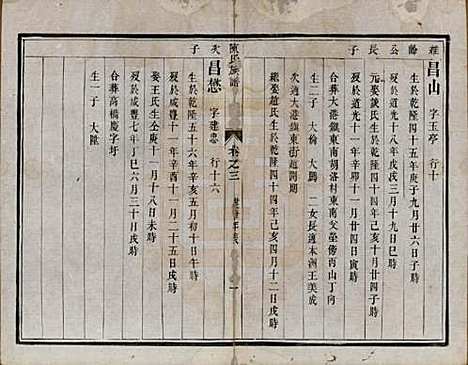 廷齡公長子
昌山 字玉亭 行十
生於乾隆四十五年庚子九月九日戌時
歿於道光十八年戊戌三月十九日巳時
元娶談氏生於乾隆四十四年己亥十月廿四子時
歿於道光十一年辛卯十一月廿四日寅時
合葬大港鎮東南胡洛村東南父塋傍丙山丁向
生二子 大倫 大鵬 二女長適本洲王美成
次適大港鎮東街趙開期
繼娶趙氏生於乾隆四十四年己亥四月十二日戌時
陳氏族譜
卷之三
一
次子
昌懋 字建忠 行十六
生於乾隆五十六年辛亥五月初十日午時
歿於咸豐十一年辛酉十一月二十五日戌時
娶王氏生壬庚十一月十八日未時
歿於咸豐七年丁巳六月三十日戌時
合葬高橋慶字圩
生一子 大陞